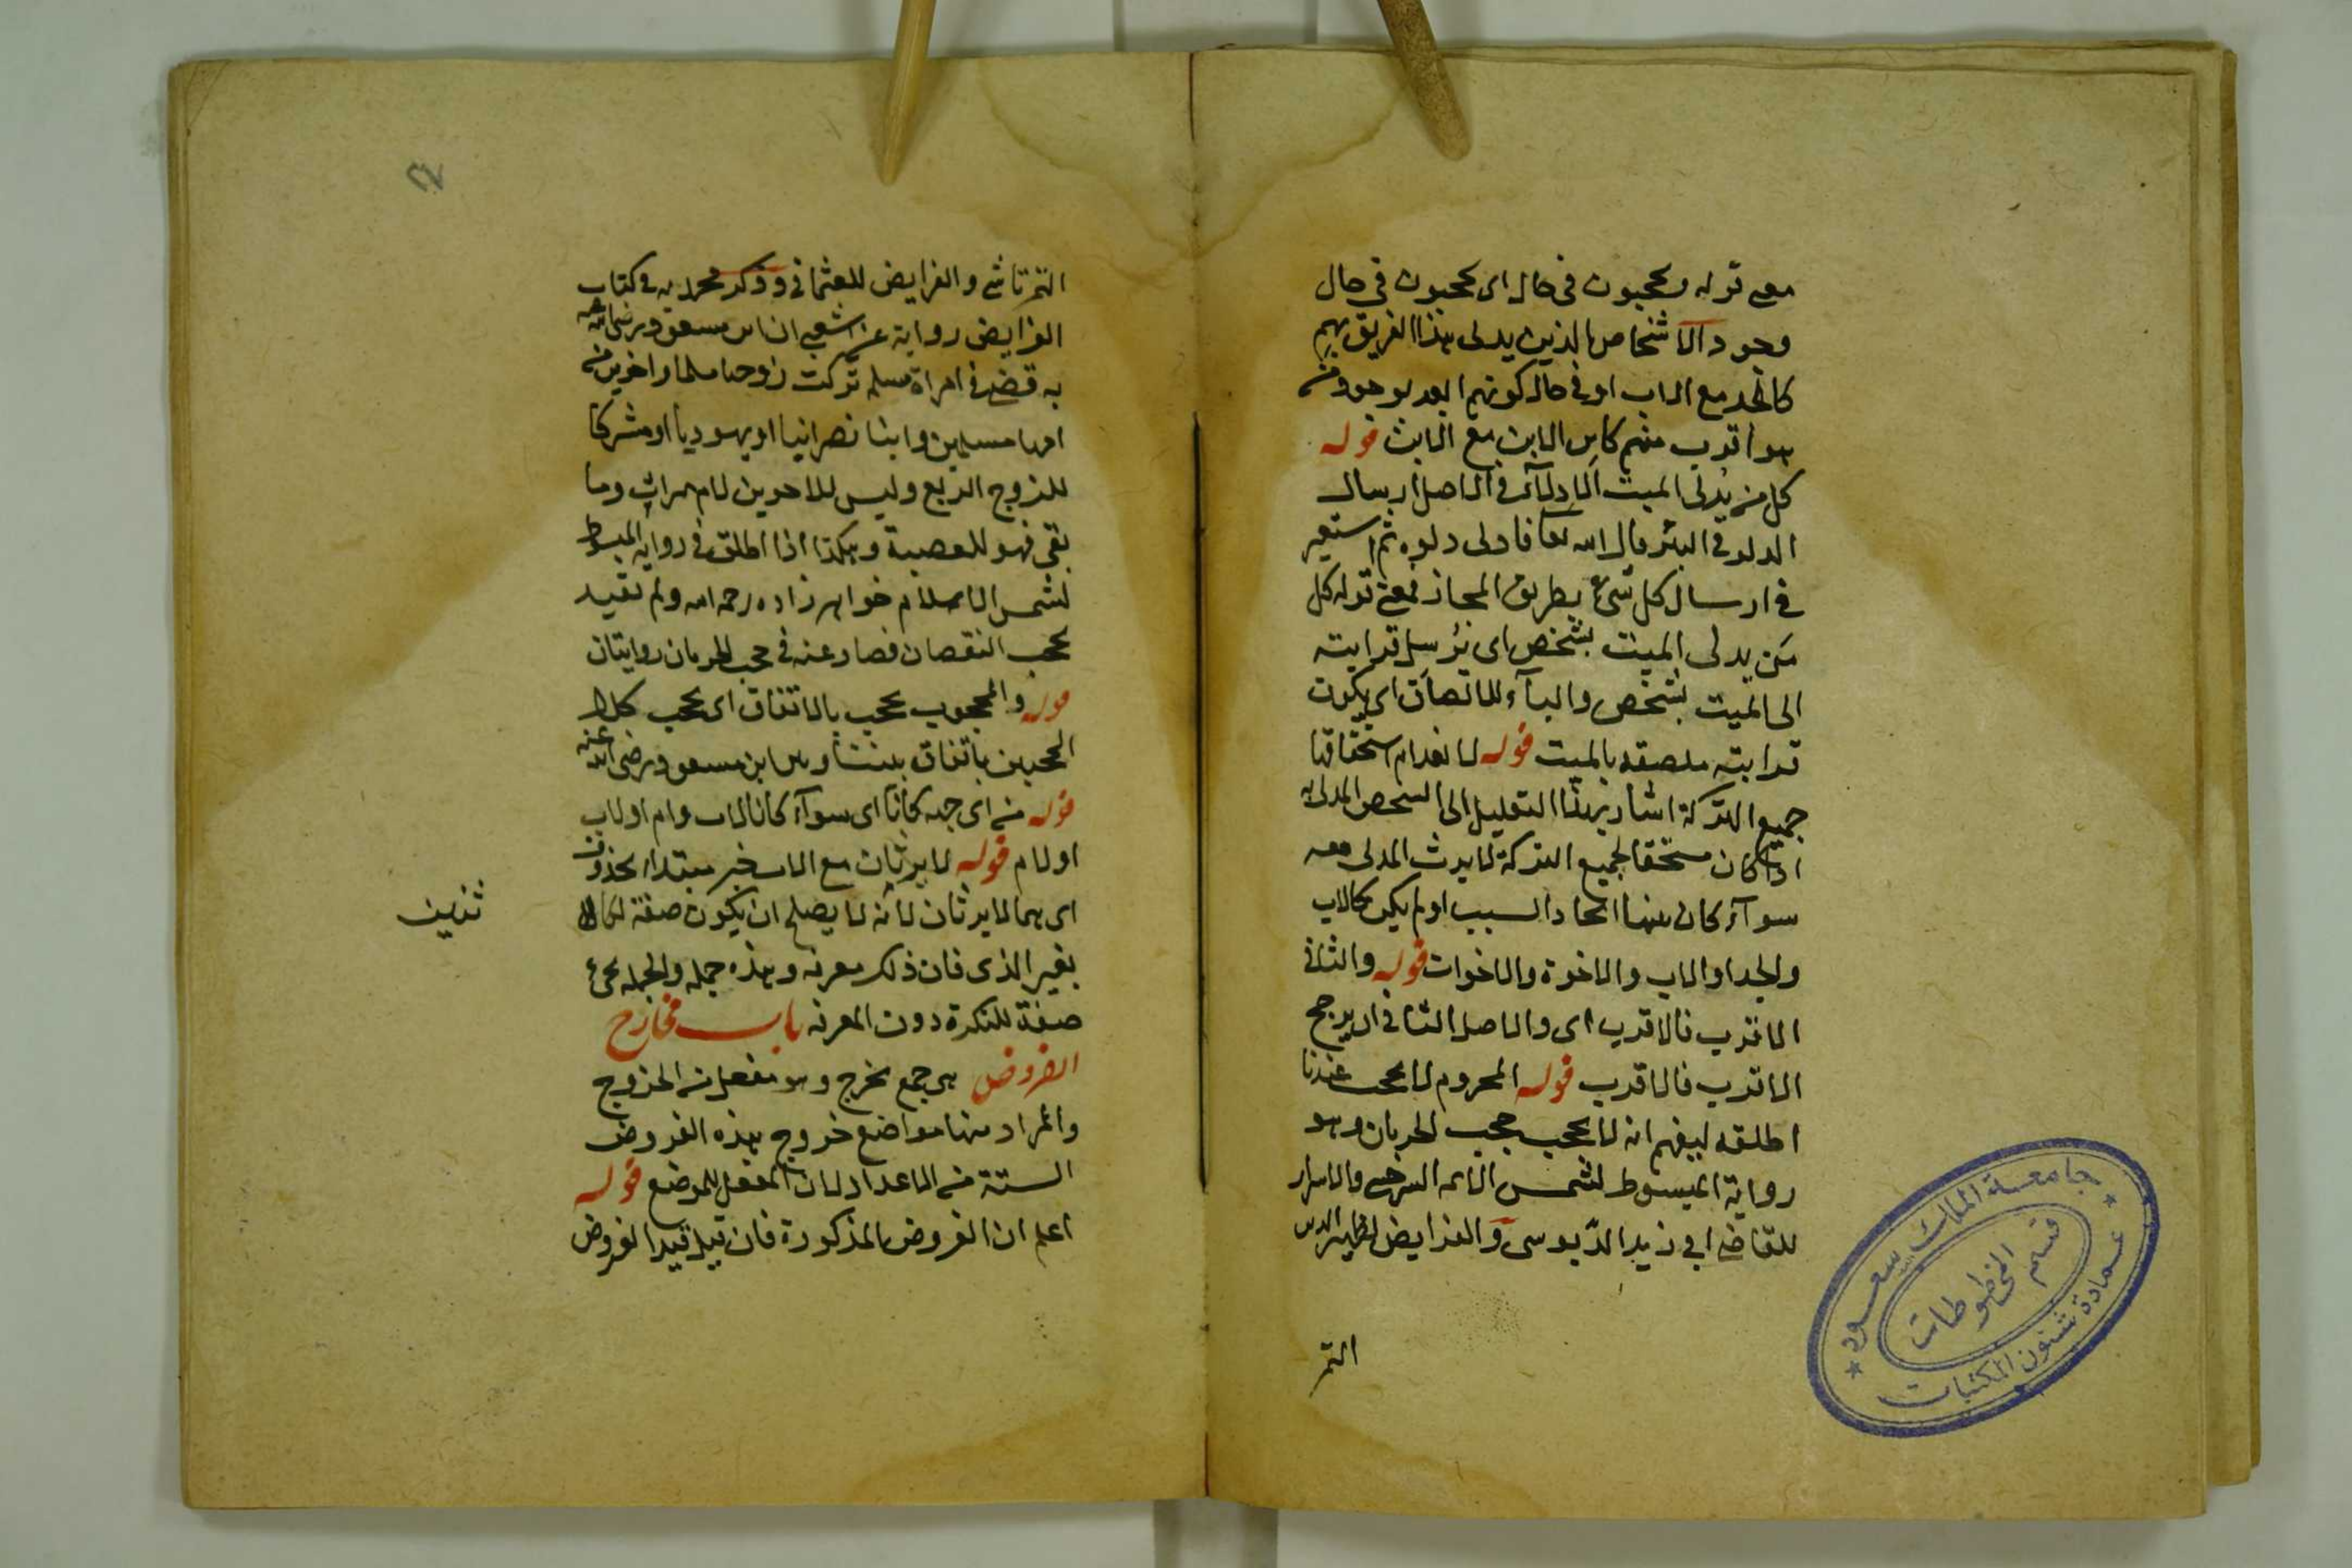 معنى قوله ويحجبون في حال اى يحجبون في حال
وجود الاشخاص الذين يدلى هذا الفريق بهم
كالجد مع الاب او في حال كونهم ابعد بوجود من
هو اقرب منهم كابن الابن مع الابن قوله
كل من يدلى الميت الادلاء في الاصل ارسال
الدلو في البئر قال الله تعا فادلى دلوه ثم استعير
في ارسال كل شىء بطريق المجاز فمعنى قوله كل
من يدلى الميت بشخص اى يرسل قرابته
الى الميت بشخص والباء للالصاق اى يكون
قرابته ملصقه بالميت قوله لانعدام استحقاقها
جميع التركة اشار بهذا التعليل الى الشخص المدلى به
اذا كان مستحقا لجميع التركة لا يرث المدلى معه
سواء كان بينهما اتحاد السبب او لم يكن كالاب
والجد او الاب والاخوة والاخوات قوله والثانى
الاقرب فالاقرب اى والاصل الثانى ان يرجح
الاقرب فالاقرب قوله المحروم لا يحجب عندنا
اطلقه ليفهم انه لا يحجب حجب الحرمان وهو
رواية المبسوط لشمس الائمه السرخسى والاسرار
للقاضى ابي زيد الدبوسى والفرايض لظهير الدين
التمر
التمرتاشى والفرايض للعثمانى وذكر محمد به في كتاب
الفرايض رواية عن الشعبى ان ابن مسعود رضى الله عنه
به قضى في امراة مسلمه تركت زوجا مسلما واخوين من
امها مسلمين وابنا نصرانيا او يهوديا او مشركا
للزوج الربع وليس للاخوين لام ميراث وما
بقى فهو للعصبة وهكذا اذا اطلق في رواية المبسوط
لشمس الاسلام خواهر زاده رحمه الله ولم تقيد
بحجب النقصان فصار عنه في حجب الحرمان روايتان
قوله والمحجوب يحجب بالاتفاق اى يحجب كلا
الحجبين باتفاق بيننا وبين ابن مسعود رضى الله عنه
قوله من اى جهه كانا اى سواء كانا لاب وام او لاب
او لام قوله لا يرثان مع الاب خبر مبتداء محذوف
اى هما لا يرثان لانه لا يصلح ان يكون صفة
بغير الذى فان ذلك معرفه وهذه جمله والجمله تجىء
صفة للنكرة دون المعرفه باب مخارج
الفروض هى جمع مخرج وهو مفعل من الخروج
والمراد منها مواضع خروج هذه الفروض
الستة من الاعداد لان المفعل للموضع قوله
اعلم ان الفروض المذكورة فان قيل قيد الفروض
جامعة الملك سعود
قسم المخطوطات
عمادة شئون المكتبات